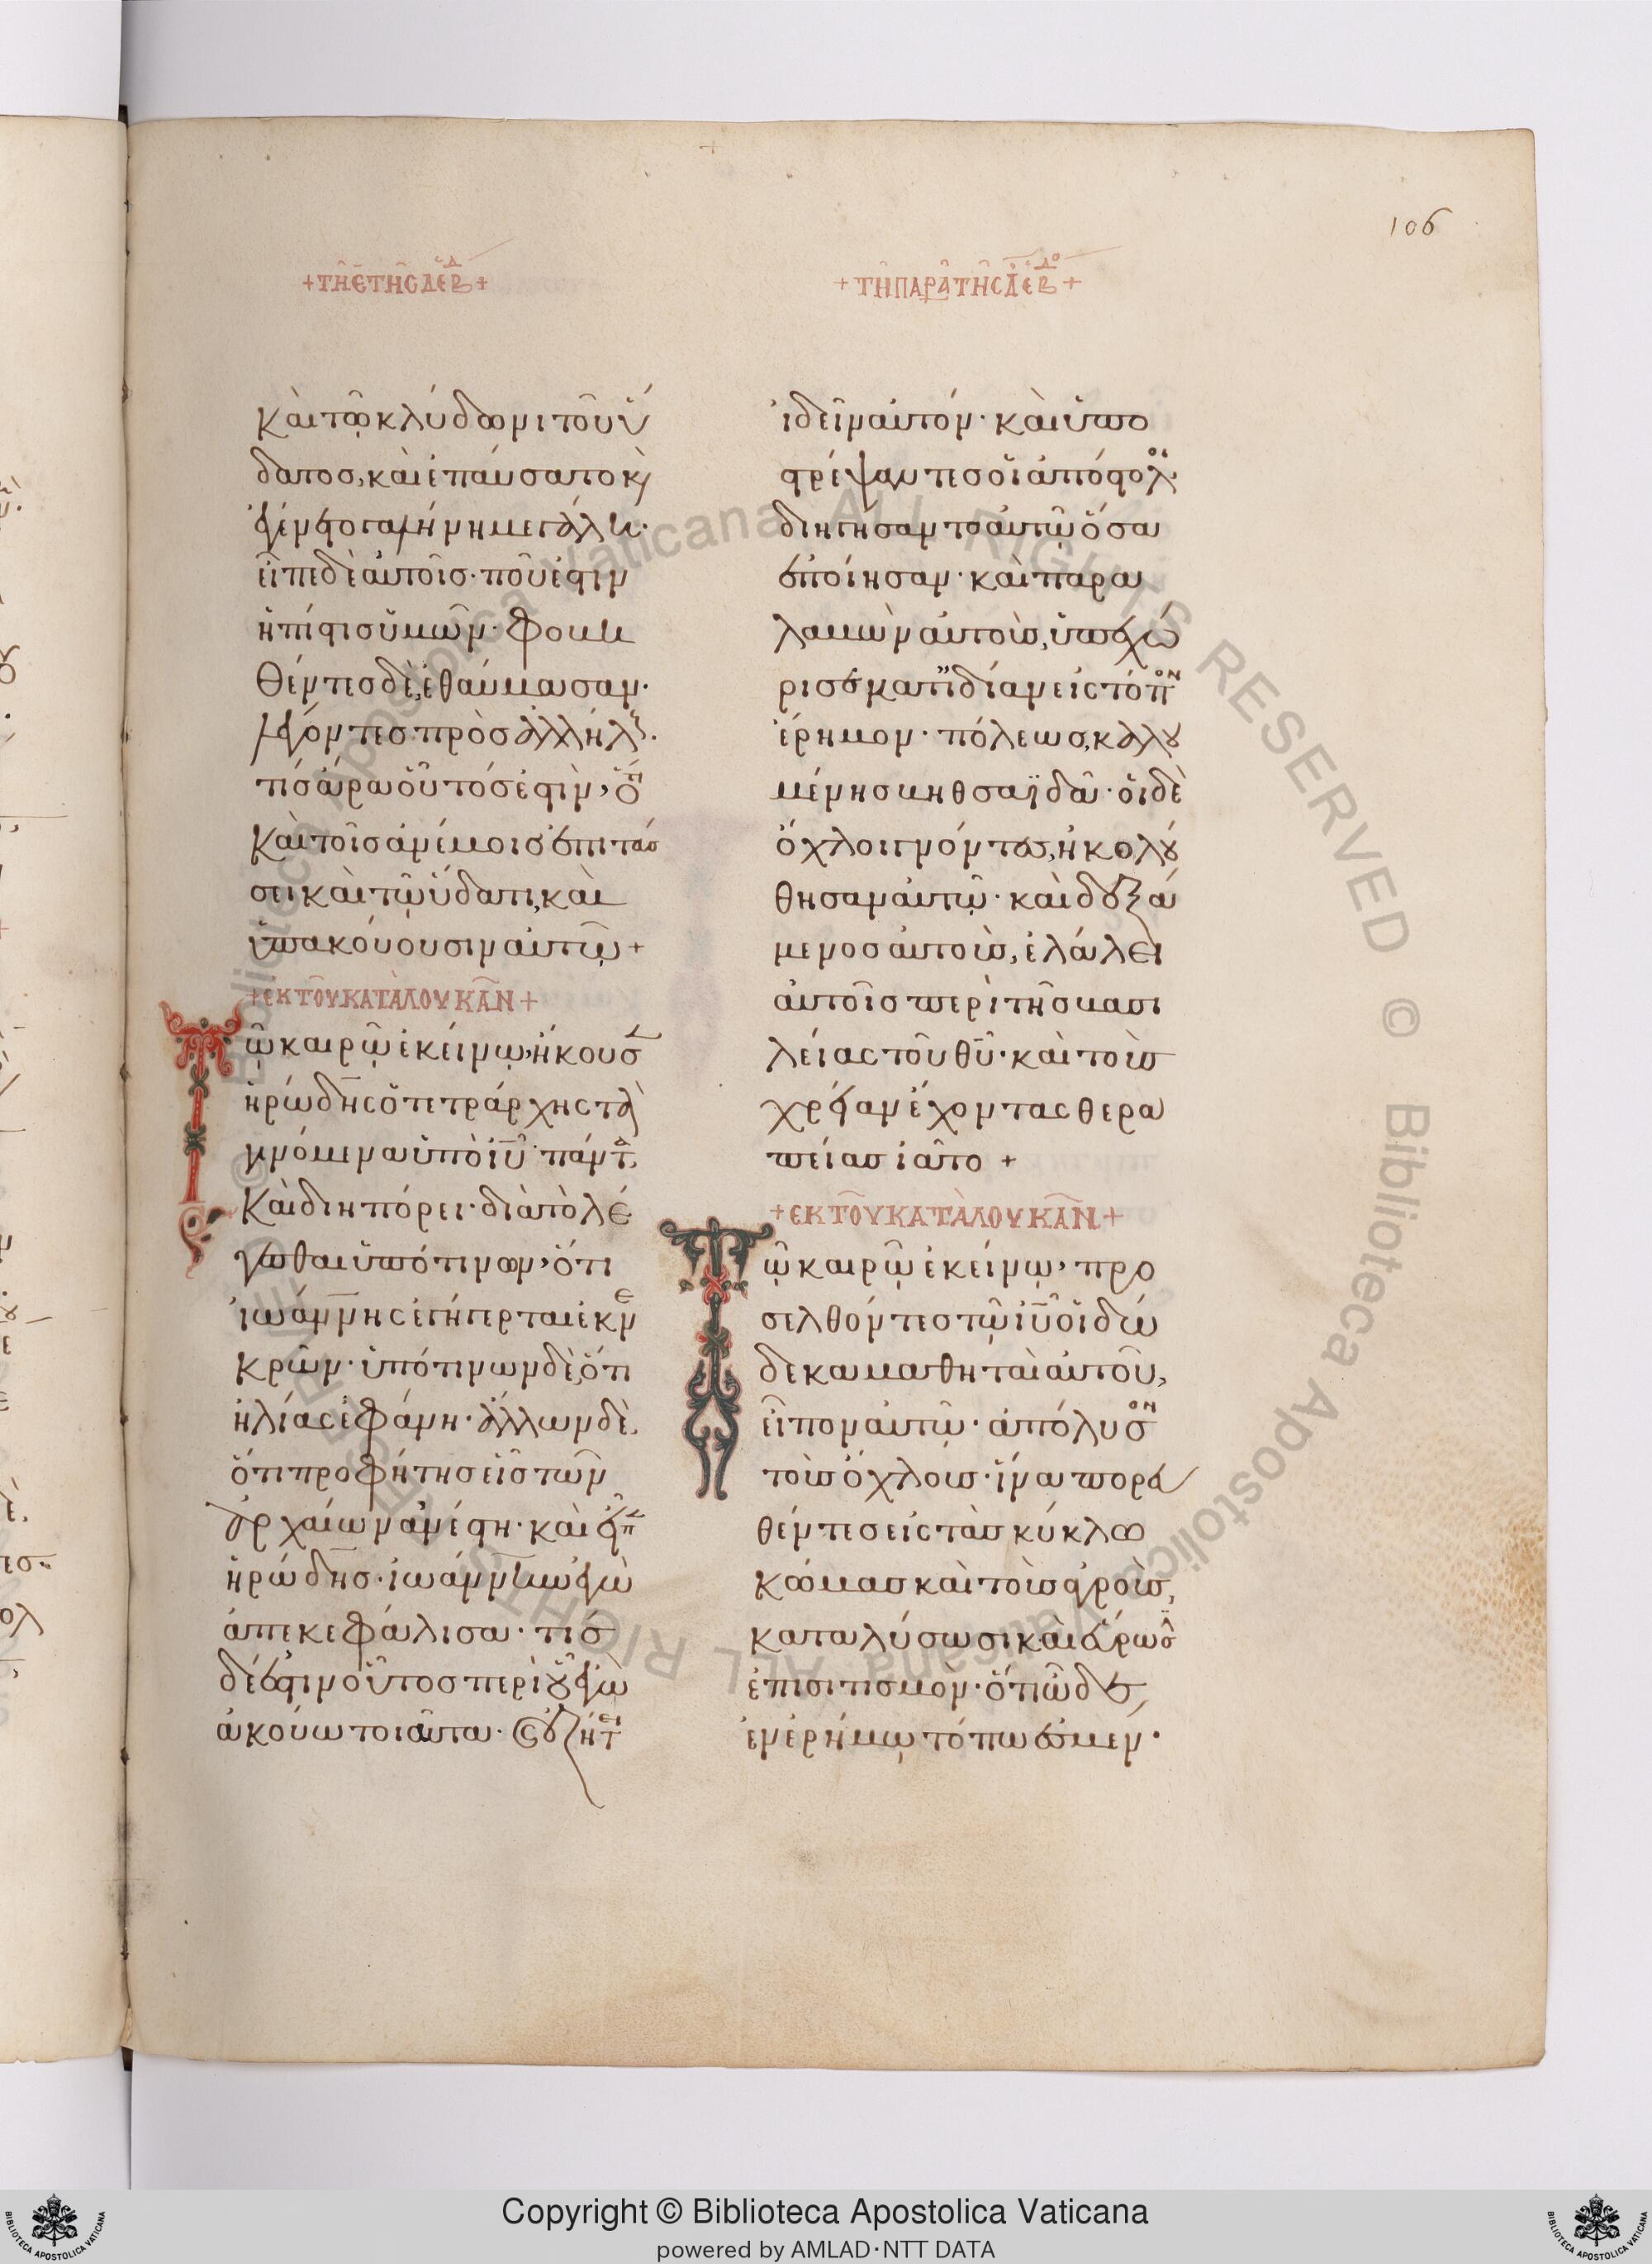 106
+ΤΗ Ε ΤΗϹ Δ ΕΒΔ+
καὶ τῷ κλύδωνι τοῦ ὕ
δατος, καὶ ἐπαύσατο κ(αὶ)
ἐγένετο γαλήνη μεγάλη·
εἶπε δὲ αὐτοῖσ· ποῦ ἐστιν
ἡ πίστισ ὑμῶν· φοβη
θέντεσ δὲ, ἐθαύμασαν·
λέγοντεσ πρὸσ ἀλλήλ
τίσ ἄρα οὗτόσ ἐστὶν, ὅτ
καὶ τοῖσ ἀνέμοισ ἐπιτάσ
σει καὶ τῷ ὕδατι, καὶ
ὑπακούουσιν αὐτῷ +
+ΕΚ ΤΟΥ ΚΑΤΑ ΛΟΥΚΑΝ+
Τῷ καιρῷ ἐκείνῳ, ἤκουσ
ἡρώδης ὁ τετράρχης τὰ
γινόμενα ὑπὸ ἰῦ πάντ
καὶ διηπόρει· διὰ τὸ λέ
γεσθαι ὑπό τινων, ὅτι
ἰωάννης ἐγήγερται ἐκ νε
κρῶν· ὑπό τινων δὲ, ὅτι
ἡλίας ἐφάνη· ἄλλων δὲ,
ὅτι προφήτησ εἷσ τῶν
ἀρχαίων ἀνέστη· καὶ εἶπ
ἡρώδησ· ἰωάννην ἐγὼ
ἀπεκεφάλισα· τίσ
δέ ἐστιν οὗτοσ περὶ οὗ ἐγὼ
ἀκούω τοιαῦτα· ἐζήτει
+ΤΗ ΠΑΡΑ ΤΗϹ Δ ΕΒΔΟ+
ἰδεῖν αὐτόν· καὶ ὑπο
στρέψαντεσ οἱ ἀπόστολοι
διηγήσαντο αὐτῷ ὅσα
ἐποίησαν· καὶ παρα
λαβὼν αὐτοὺσ, ὑπεχώ
ρισεν κατ ἰδίαν εἰς τόπον
ἔρημον· πόλεωσ, καλου
μένησ βηθσαϊδᾶ· οἱ δὲ
ὄχλοι γνόντεσ, ἠκολού
θησαν αὐτῷ· καὶ δεξά
μενοσ αὐτοὺσ, ἐλάλει
αὐτοῖσ περὶ τῆσ βασι
λείας τοῦ θῦ· καὶ τοὺσ
χρείαν ἔχοντας θερα
πείασ ἰᾶτο +
+ΕΚ ΤΟΥ ΚΑΤΑ ΛΟΥΚΑΝ+
Τῷ καιρῷ ἐκείνῳ, προ
σελθόντεσ τῷ ἰῦ οἱ δώ
δεκα μαθηταὶ αὐτοῦ,
εἶπον αὐτῷ· ἀπόλυσον
τοὺσ ὄχλουσ· ἵνα πορευ
θέντεσ εἰς τὰσ κύκλω
κώμασ καὶ τοὺσ ἀγροὺσ,
καταλύσωσι καὶ εὕρωσ
ἐπισιτισμὸν· ὅτι ὧδε
ἐν ἐρήμῳ τόπω ἐσμὲν·
Copyright © Biblioteca Apostolica Vaticana
powered by AMLAD·NTT DATA